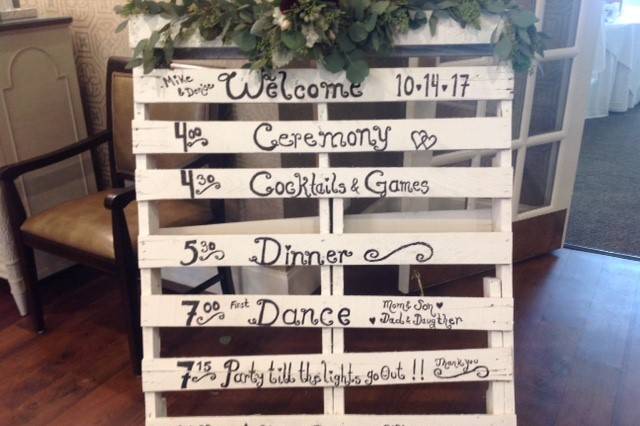 Mike & Denise Welcome 10•14•17
4:00 Ceremony
4:30 Cocktails & Games
5:30 Dinner
7:00 First Dance Mom & Son
Dad & Daughter
7:15 Party till the lights go Out !! Thank you